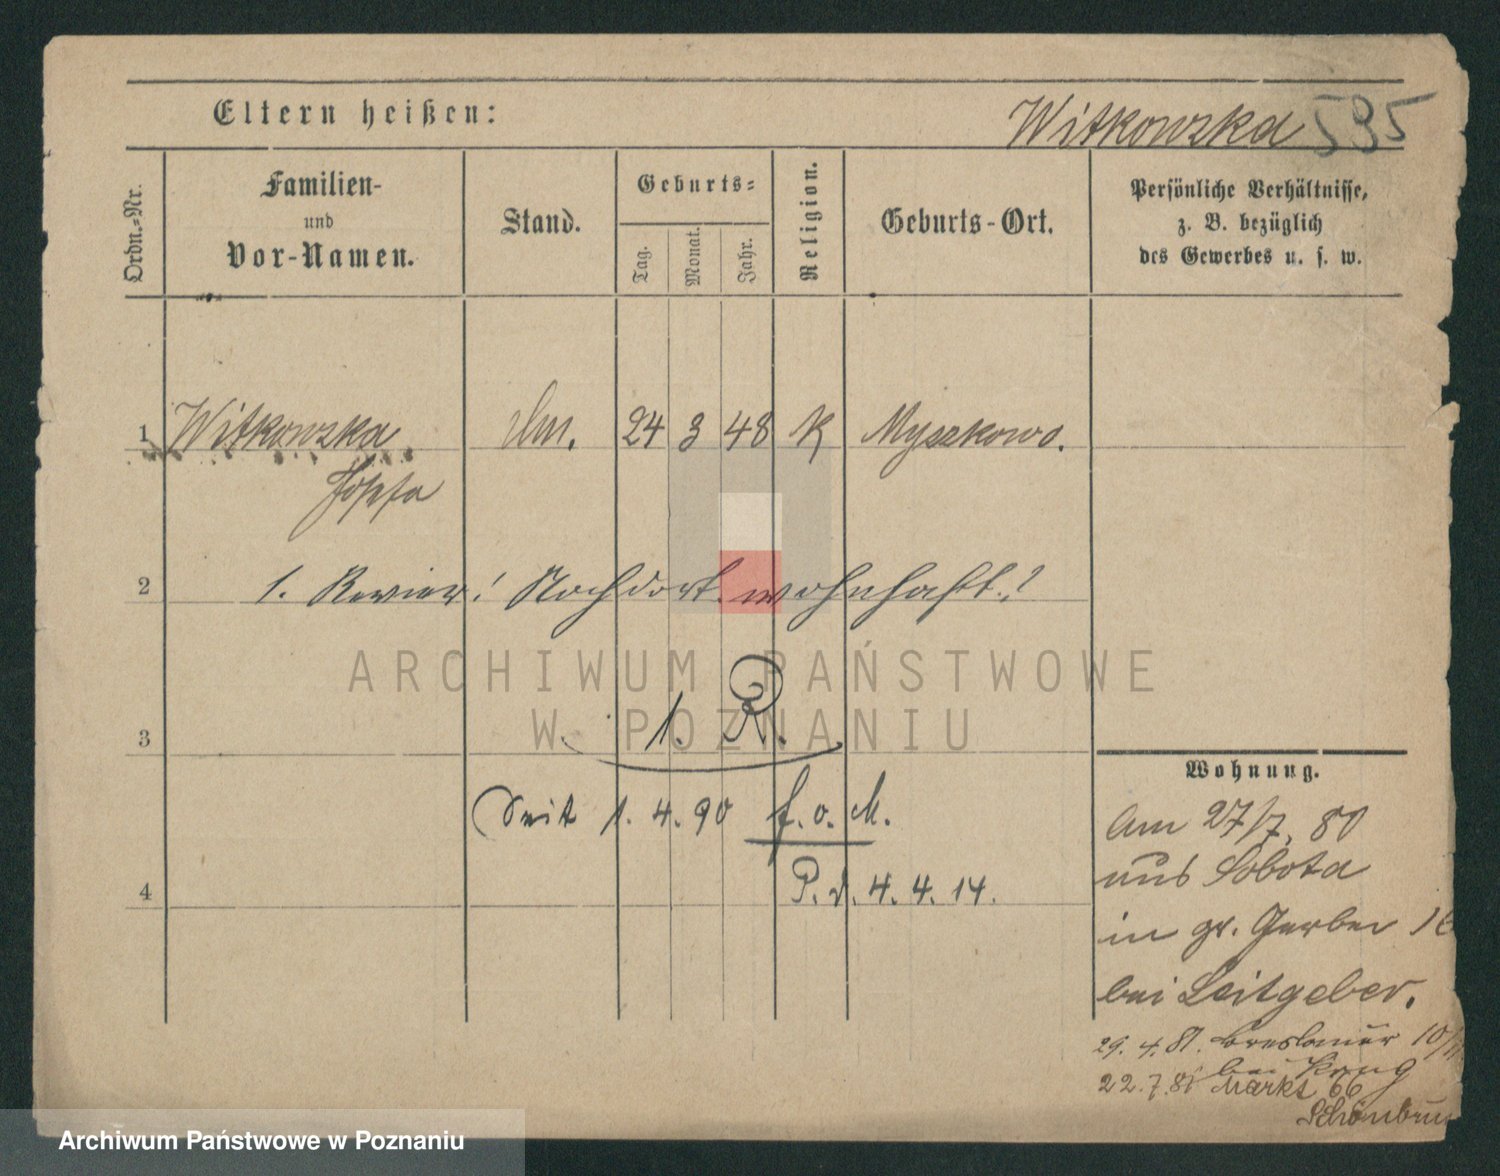 Eltern heißen:
Witkowska 595
Ordn.=Nr.
Familien-
und
Vor-Namen.
Stand.
Geburts=
Tag.
Monat.
Jahr.
Religion.
Geburts-Ort.
Persönliche Verhältnisse,
z. B. bezüglich
des Gewerbes u. s. w.
1 Witkowska 24 3 48 K Myszkowo.
Josefa
2 1. Revier! Noch dort wohnhaft.?
ARCHIWUM PAŃSTWOWE
W POZNANIU
3 1. R.
Seit 1. 4. 90 f. o. M.
4 P. d. 4. 4. 14.
Wohnung.
Am 27/7. 80
aus Sobota
in gr. Gerber 16
bei Leitgeber.
29. 4. 81. Breslauer 10/
bei Krug
22. 7. 81 Markt 66
Archiwum Państwowe w Poznaniu